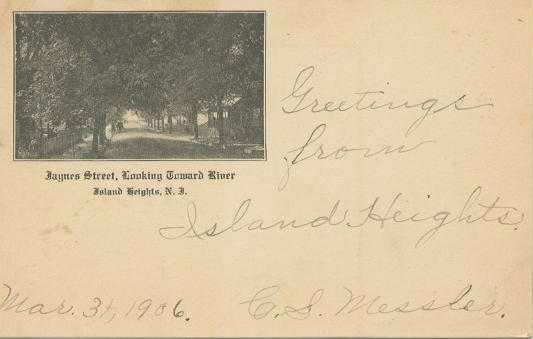 Jaynes Street, Looking Toward River
Island Heights, N. J.
Greetings
from
Island Heights.
Mar. 31, 1906.
C. S. Messler.